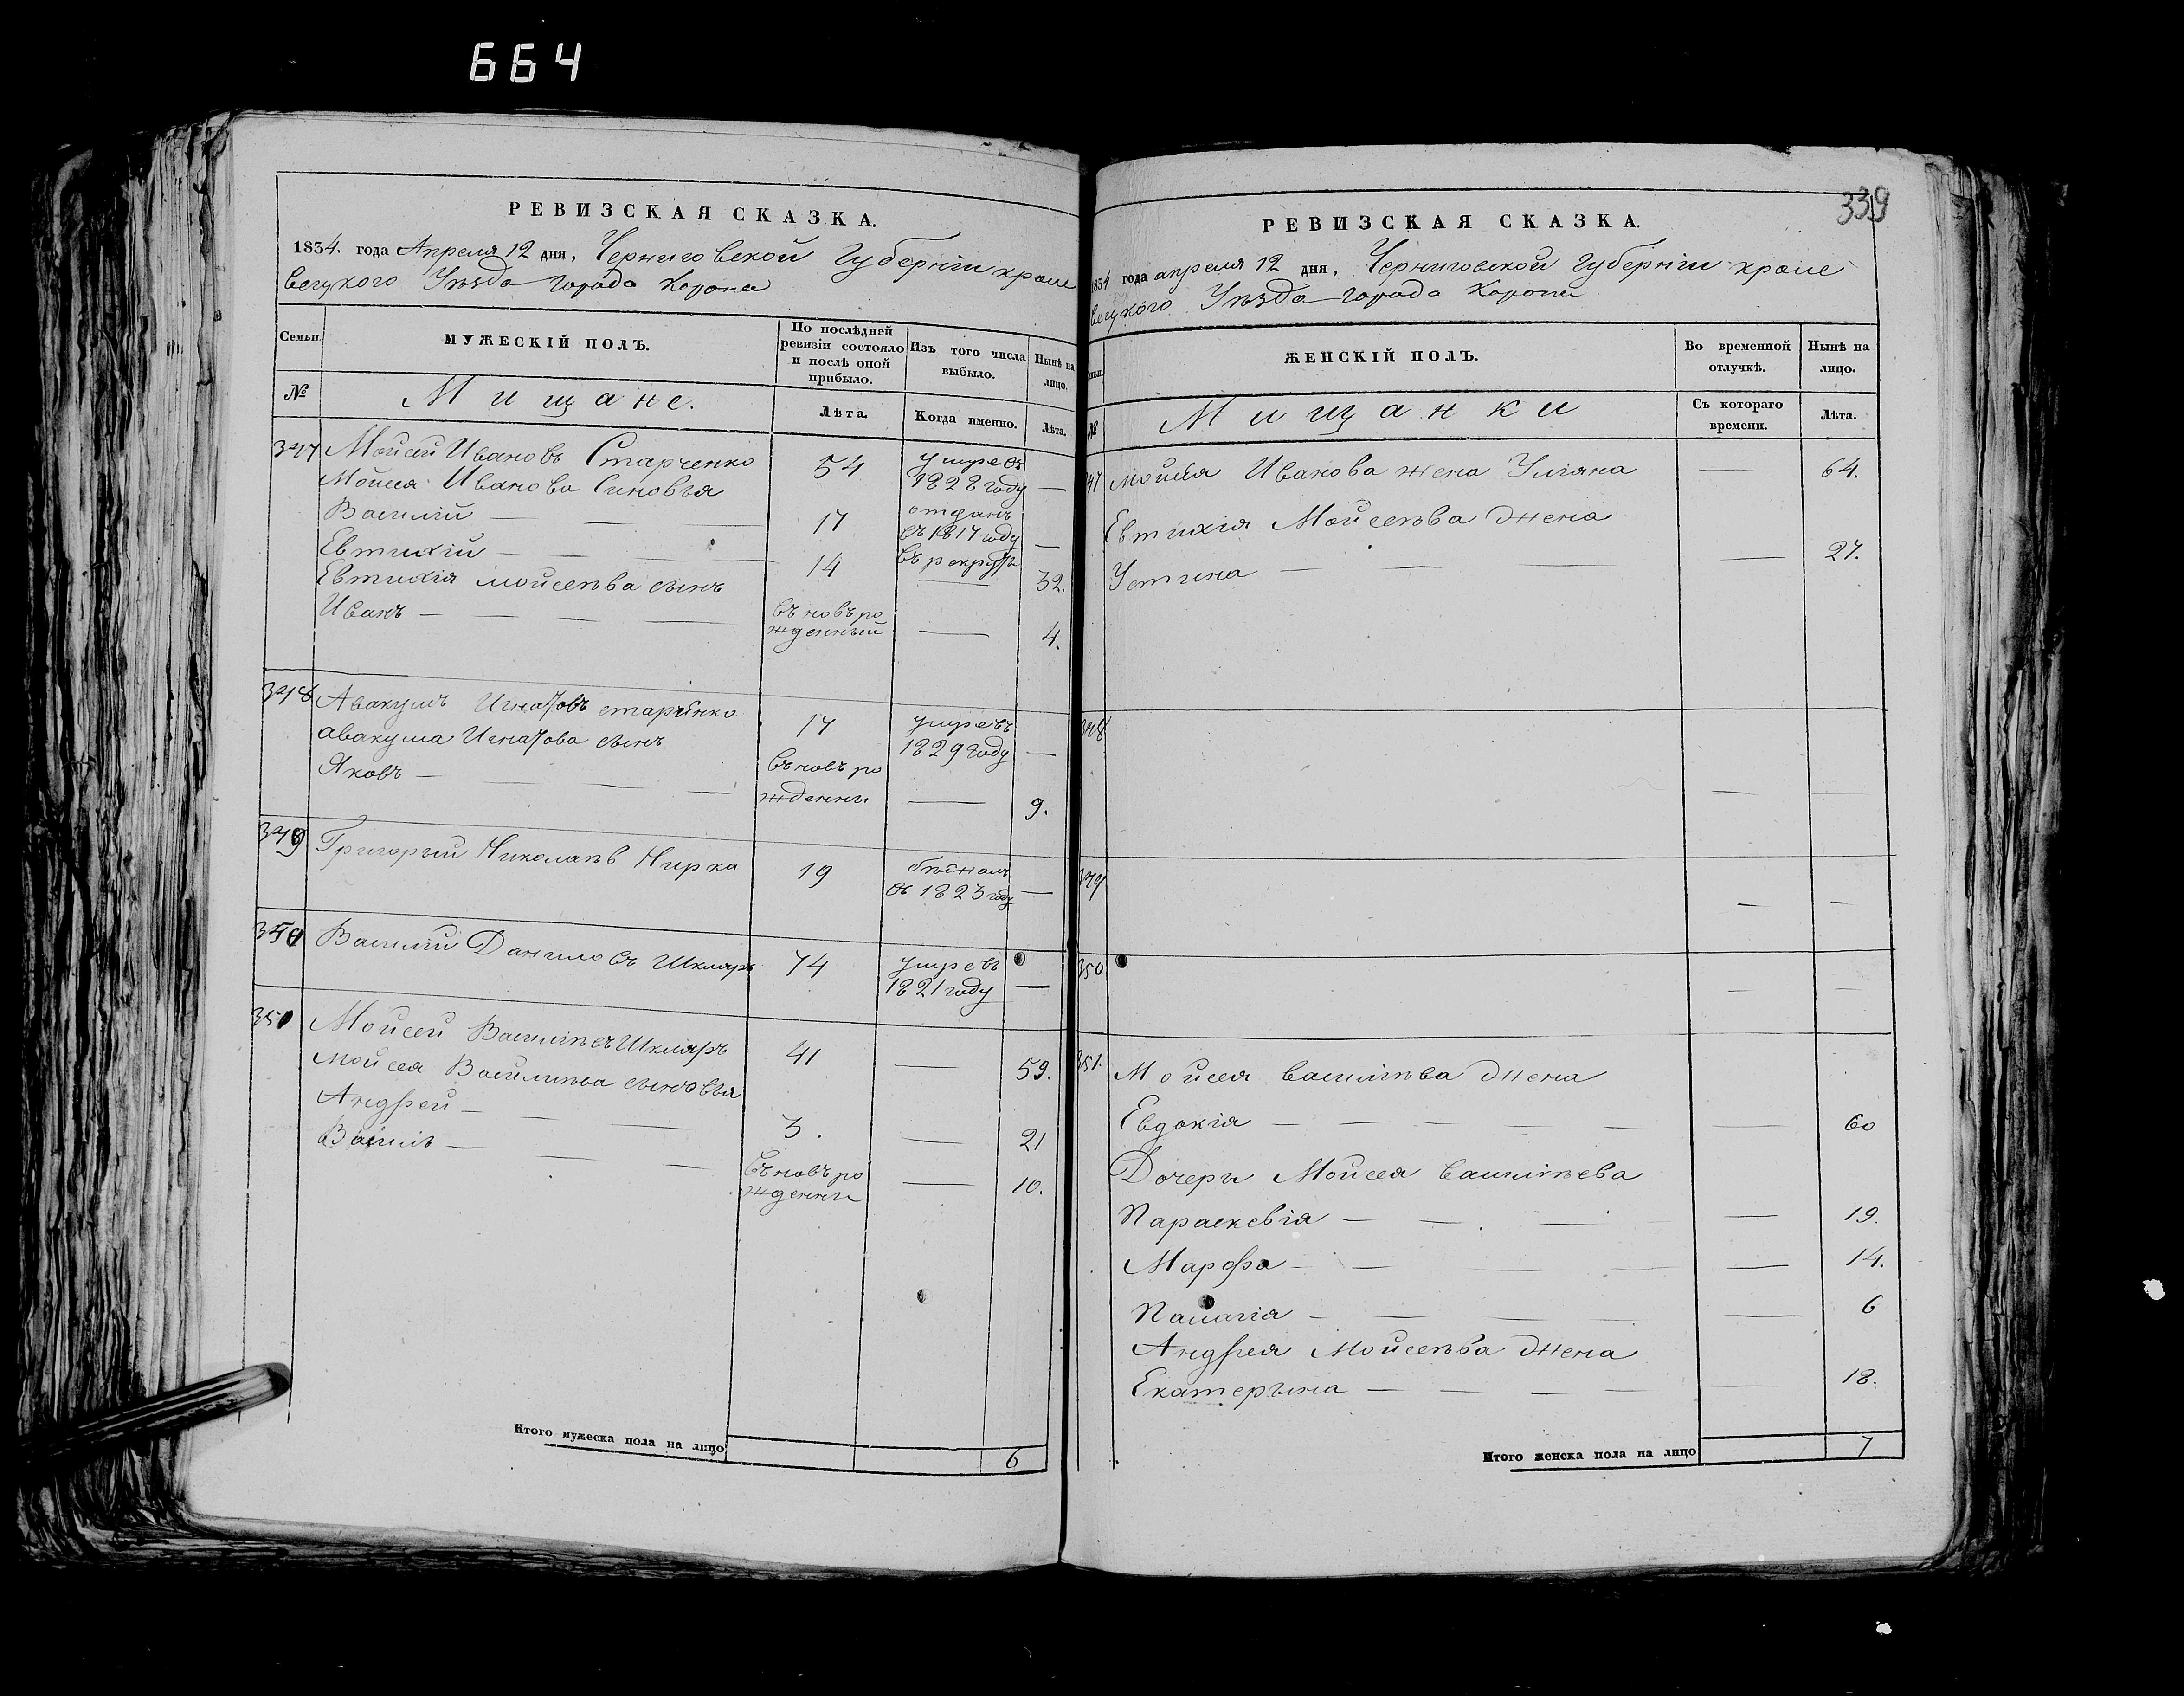 664
РЕВИЗСКАЯ СКАЗКА.
1834. года Апреля 12 дня, Черниговской Губерніи кроле
вецкого Уѣзда города Коропа
Семьи.
МУЖЕСКІЙ ПОЛЪ.
По послѣдней ревизіи состояло и послѣ оной прибыло.
Изъ того числа выбыло.
Нынѣ на лицо.
№
Мищане.
Лѣта.
Когда именно.
Лѣта.
347 Мойсей Ивановъ Старченко 54 умре въ
Мойсея Иванова Синовья 1828 году —
Василій — — 17 отданъ
въ 1817 году —
Евтихій — — — 14 въ рекруты
Евтихія мойсеѣва сынъ — 32.
Иванъ — — — — въ новъ ро
жденный — 4.
348 Авакумъ Игнатовъ старченко 17 умре въ
авакума Игнатова сынъ 1829 году —
Яковъ — — — въ новъ ро
жденны — 9.
349 Григорый Николаѣв Нирка 19 бѣжалъ
въ 1823 году —
350 Василий Данилов въ Шкляръ 74 умре въ
1821 году —
351 Мойсей Василѣвъ Шкляръ 41 — 59.
Мойсея Василиѣва сыновья
Андрей — — — 3. — 21
Василь — — — въ новъ ро
жденны — 10.
Итого мужеска пола на лицо 6
339
РЕВИЗСКАЯ СКАЗКА.
1834 года апреля 12 дня, Черниговской Губерніи кроле
вецкого Уѣзда города Коропа
Семьи.
ЖЕНСКІЙ ПОЛЪ.
Во временной отлучкѣ.
Нынѣ на лицо.
№
Мищанки
Съ котораго времени.
Лѣта.
347 Мойсея Иванова жена Уляна — 64.
Евтихія Мойсеѣва жена
Устина — — — — 27.
348 — —
349 — —
350 — —
351. Мойсея василѣва жена
Евдокія — — — — — — 60
Дочеры Мойсея василѣева
Параскевія — — — — 19.
Марфа — — — — 14.
Палагія — — — — — 6
Андрея Мойсеѣва жена
Екатерына — — — 18.
Итого женска пола на лицо 7